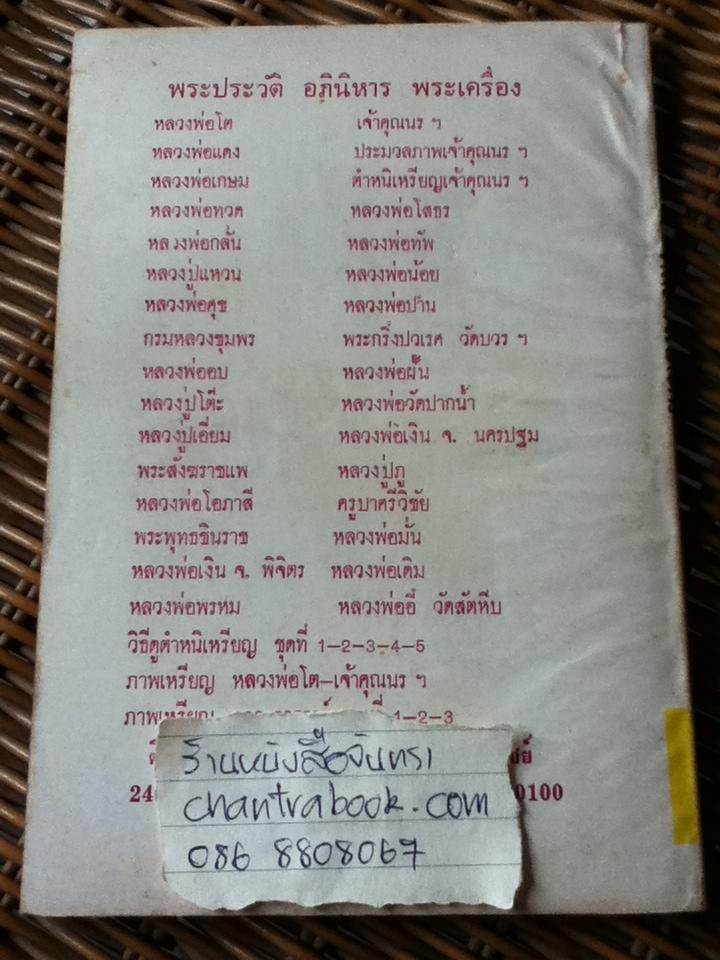 พระประวัติ อภินิหาร พระเครื่อง
หลวงพ่อโต เจ้าคุณนร ฯ
หลวงพ่อแดง ประมวลภาพเจ้าคุณนร ฯ
หลวงพ่อเกษม ตำหนิเหรียญเจ้าคุณนร ฯ
หลวงพ่อทวด หลวงพ่อโสธร
หลวงพ่อกลั่น หลวงพ่อทัพ
หลวงปู่แหวน หลวงพ่อน้อย
หลวงพ่อศุข หลวงพ่อปาน
กรมหลวงชุมพร พระกริ่งปวเรศ วัดบวร ฯ
หลวงพ่ออบ หลวงพ่อฝั้น
หลวงปู่โต๊ะ หลวงพ่อวัดปากน้ำ
หลวงปู่เอี่ยม หลวงพ่อเงิน จ. นครปฐม
พระสังฆราชแพ หลวงปู่ภู
หลวงพ่อโอภาสี ครูบาศรีวิชัย
พระพุทธชินราช หลวงพ่อมั่น
หลวงพ่อเงิน จ. พิจิตร หลวงพ่อเดิม
หลวงพ่อพรหม หลวงพ่ออี๋ วัดสัตหีบ
วิธีดูตำหนิเหรียญ ชุดที่ 1-2-3-4-5
ภาพเหรียญ หลวงพ่อโต-เจ้าคุณนร ฯ
ภาพเหรียญ 1-2-3
ร้านหนังสือจันทรา
24 chantrabook.com 0100
086 8808067